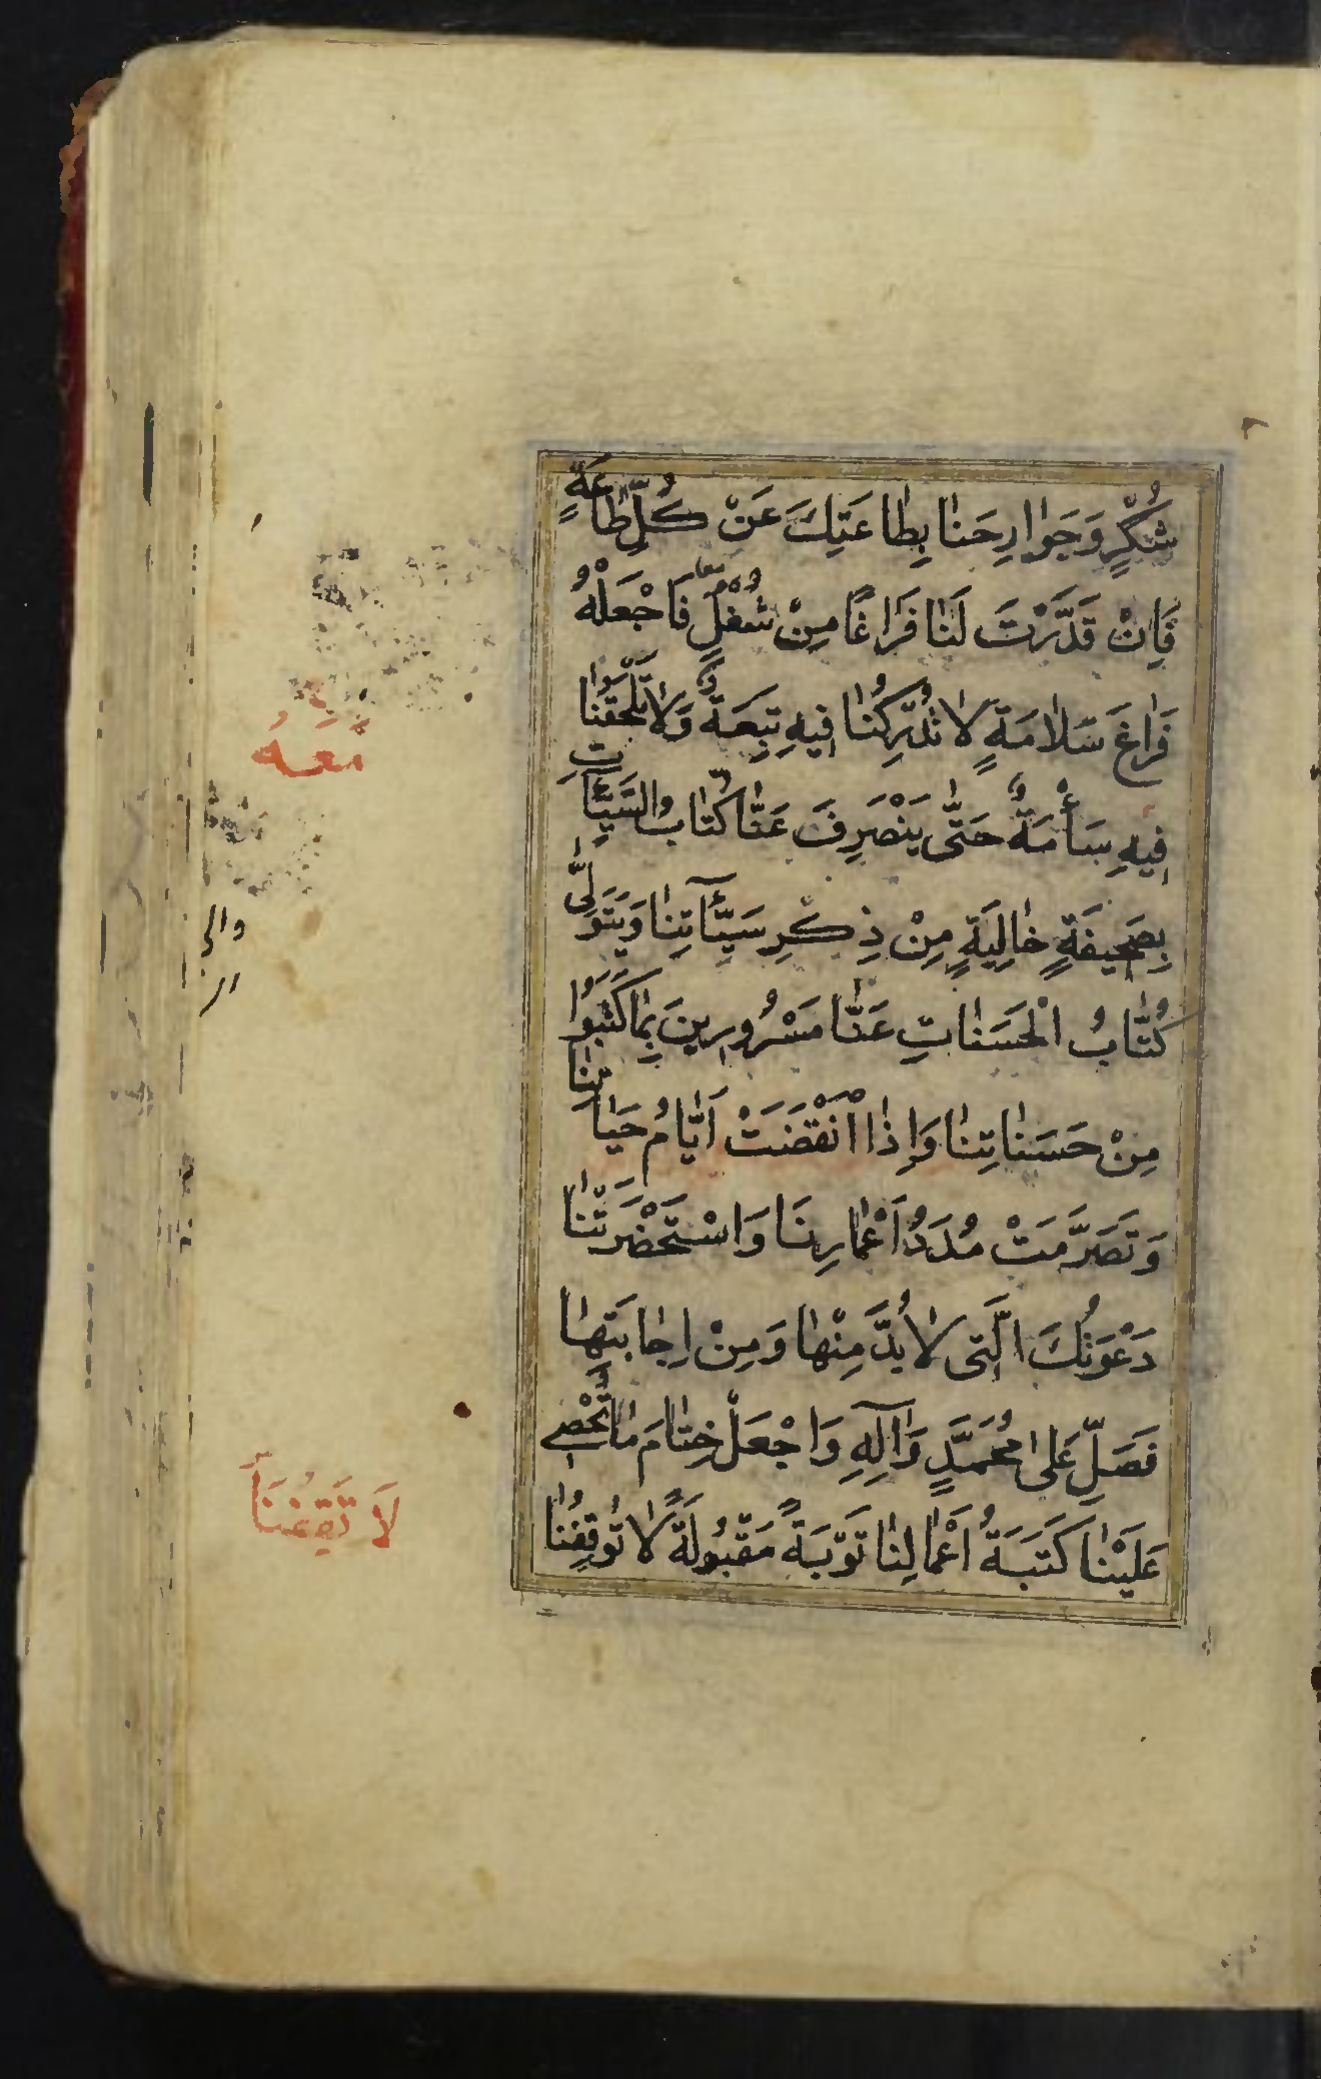 شُكْرٍ وَجَوارِحَنا بِطاعَتِكَ عَنْ كُلِّ طاعَةٍ
فَاِنْ قَدَّرْتَ لَنا فَراغًا مِنْ شُغْلٍ فَاجْعَلْهُ
فَراغَ سَلامَةٍ لا تُدْرِكُنا فيهِ تَبِعَةٌ وَلا تَلْحَقُنا
فيهِ سَأْمَةٌ حَتّى يَنْصَرِفَ عَنّا كُتّابُ السَّيِّئاتِ
بِصَحيفَةٍ خالِيَةٍ مِنْ ذِكْرِ سَيِّئاتِنا وَيَتَوَلّى
كُتّابُ الْحَسَناتِ عَنّا مَسْرُورينَ بِما كَتَبُوا
مِنْ حَسَناتِنا وَاِذَا انْقَضَتْ اَيّامُ حَياتِنا
وَتَصَرَّمَتْ مُدَدُ اَعْمارِنا وَاسْتَحْضَرَتْنا
دَعْوَتُكَ الَّتى لا بُدَّ مِنْها وَمِنْ اِجابَتِها
فَصَلِّ عَلى مُحَمَّدٍ وَآلِهِ وَاجْعَلْ خِتامَ ما تُحْصى
عَلَيْنا كَتَبَةُ اَعْمالِنا تَوْبَةً مَقْبُولَةً لا تُوقِفُنا
مَعَهُ
لَا تَقِفُنَا